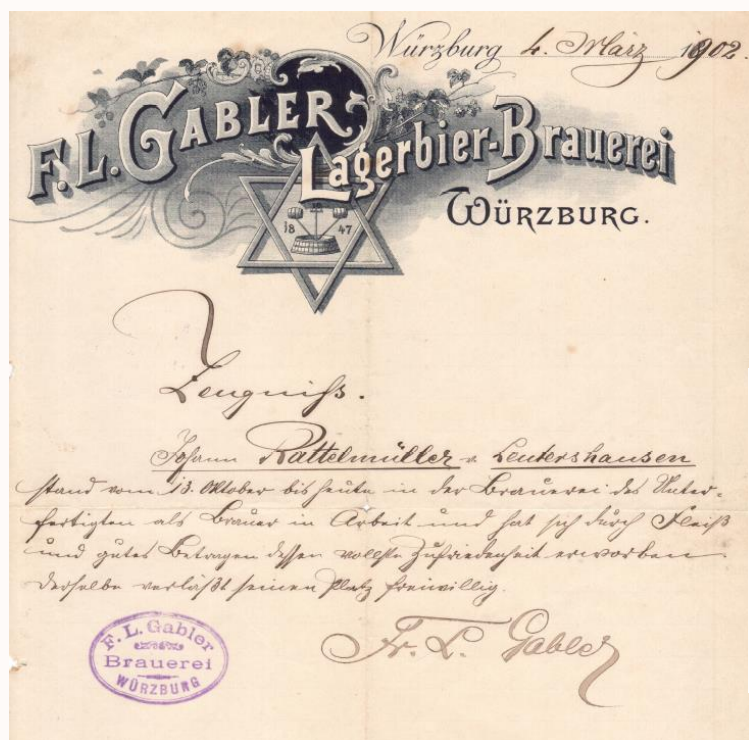 Würzburg 4. März 1902.
F. L. GABLER
Lagerbier-Brauerei
WÜRZBURG.
18 47
Zeugniß.
Johann Rattelmüller v. Leutershausen
stand vom 13. Oktober bis heute in der Brauerei des Unter-
fertigten als Brauer in Arbeit und hat sich durch Fleiß
und gutes Betragen dessen vollste Zufriedenheit erworben.
Derselbe verläßt seinen Platz freiwillig.
Fr. L. Gabler
F. L. Gabler
Brauerei
WÜRZBURG